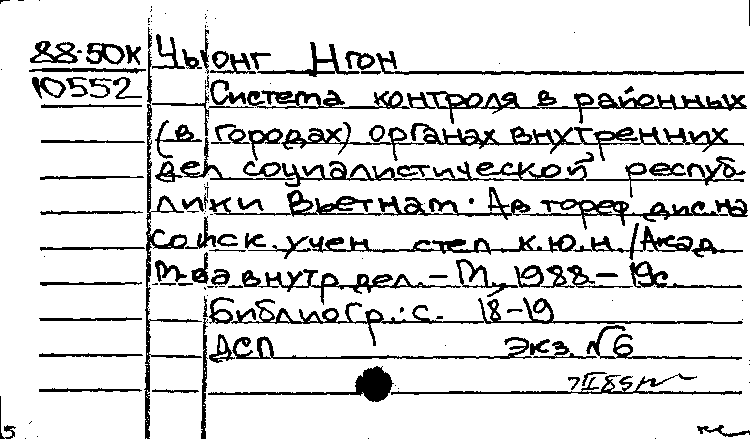 88-50К Чыонг Нгон
10552 Система контроля в районных
(в городах) органах внутренних
дел социалистической респуб-
лики Вьетнам: Автореф. дис. на
соиск. учен степ к.ю.н. /Акад.
М-ва внутр. дел. – М., 1988 – 19с.
Библиогр.: с. 18-19
ДСП экз. №6
5